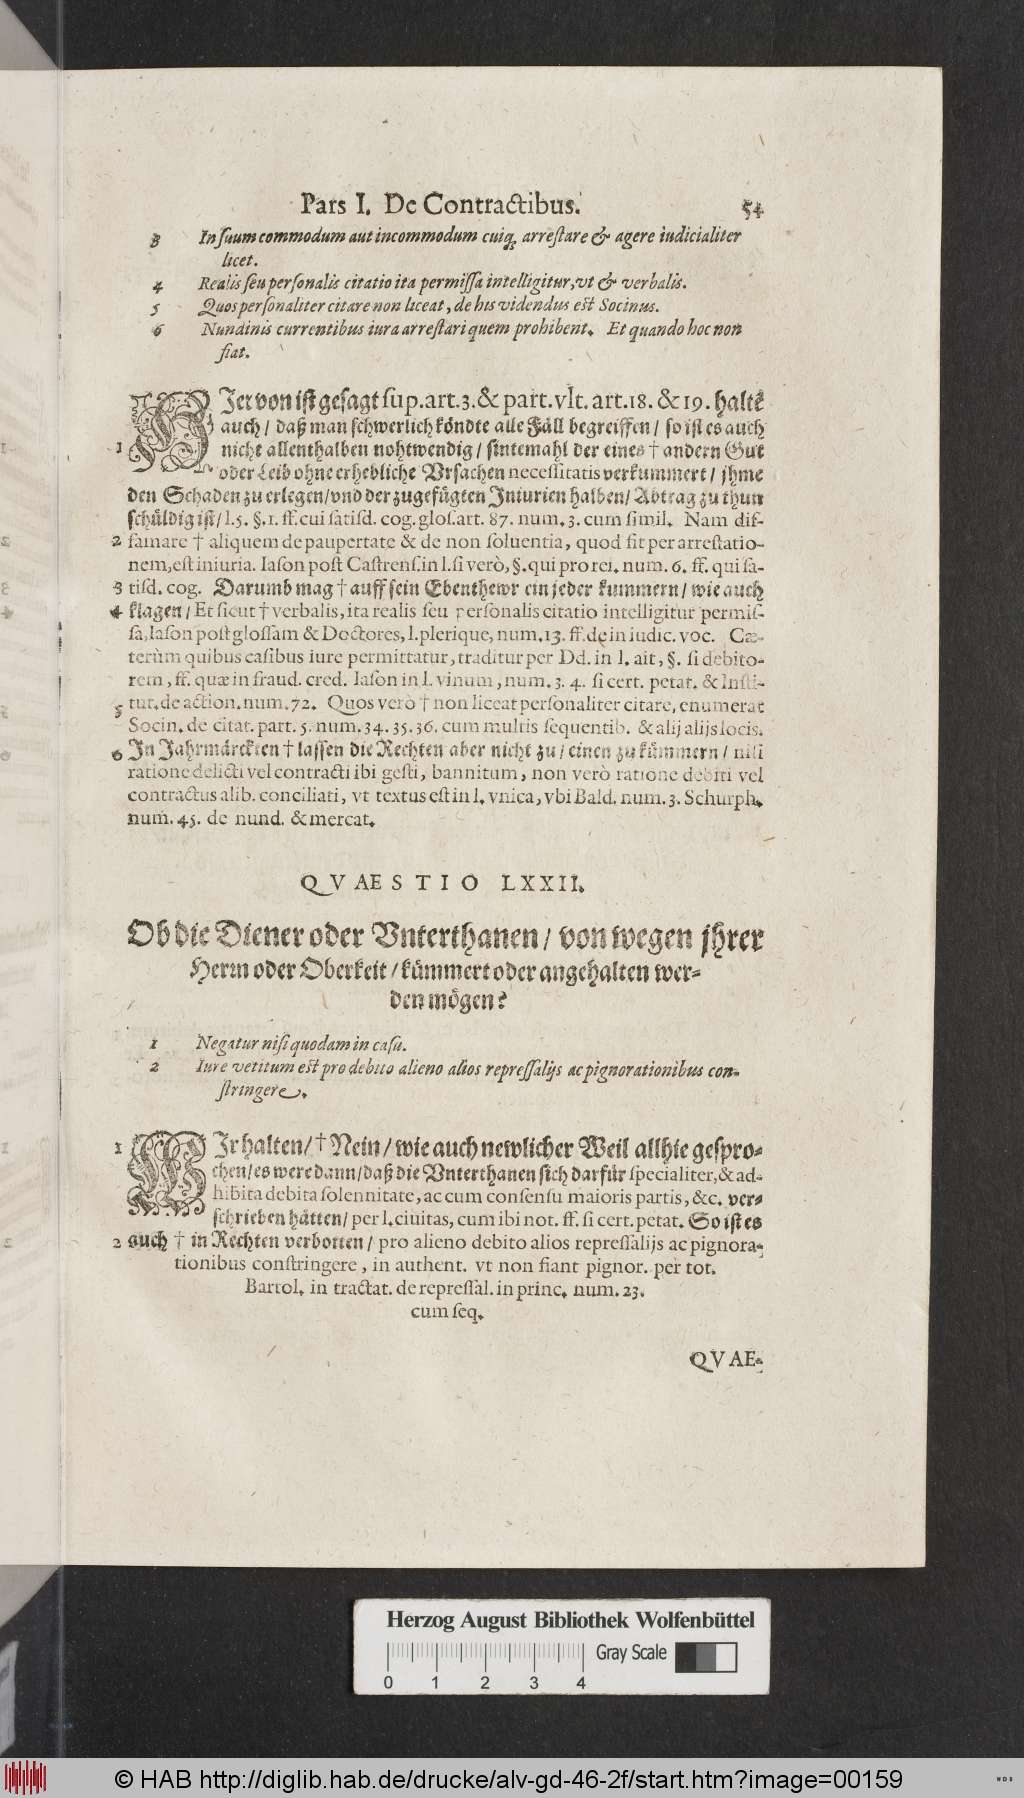 Pars I. De Contractibus. 54
3 In suum commodum aut incommodum cuiq́; arrestare & agere iudicialiter
licet.
4 Realis seu personalis citatio ita permissa intelligitur, vt & verbalis.
5 Quos personaliter citare non liceat, de his videndus est Socinus.
6 Nundinis currentibus iura arrestari quem prohibent. Et quando hoc non
fiat.
HIervon ist gesagt sup. art. 3. & part. vlt. art. 18. & 19. haltẽ
auch / daß man schwerlich köndte alle Fäll begreiffen / so ist es auch
1 nicht allenthalben nohtwendig / sintemahl der eines † andern Gut
oder Leib ohne erhebliche Vrsachen necessitatis verkummert / jhme
den Schaden zu erlegen / vnd der zugefügten Iniurien halben / Abtrag zu thun
schüldig ist / l. 5. §. 1. ff. cui satisd. cog. glos. art. 87. num. 3. cum simil. Nam dif-
2 famare † aliquem de paupertate & de non soluentia, quod fit per arrestatio-
nem, est iniuria. Iason post Castrens. in l. si verò, §. qui pro rei. num. 6. ff. qui sa-
3 tisd. cog. Darumb mag † auff sein Ebenthewr ein jeder kummern / wie auch
4 klagen / Et sicut † verbalis, ita realis seu personalis citatio intelligitur permis-
sa, Iason post glossam & Doctores, l. plerique, num. 13. ff. de in iudic. voc. Cæ-
terùm quibus casibus iure permittatur, traditur per Dd. in l. ait, §. si debito-
rem, ff. quæ in fraud. cred. Iason in l. vinum, num. 3. 4. si cert. petat. & Insti-
tut. de action. num. 72. Quos verò † non liceat personaliter citare, enumerat
5 Socin. de citat. part. 5. num. 34. 35. 36. cum multis sequentib. & alij alijs locis.
6 In Jahrmärckten † lassen die Rechten aber nicht zu / einen zu kümmern / nisi
ratione delicti vel contracti ibi gesti, bannitum, non verò ratione debiti vel
contractus alib. conciliati, vt textus est in l. vnica, vbi Bald. num. 3. Schurph.
num. 45. de nund. & mercat.
QVAESTIO LXXII.
Ob die Diener oder Vnterthanen / von wegen jhrer
Herrn oder Oberkeit / kümmert oder angehalten wer-
den mögen?
1 Negatur nisi quodam in casu.
2 Iure vetitum est pro debito alieno alios repressalijs ac pignorationibus con-
stringere.
1 WIr halten / † Nein / wie auch newlicher Weil allhie gespro-
chen / es were dann / daß die Vnterthanen sich darfür specialiter, & ad-
hibita debita solennitate, ac cum consensu maioris partis, &c. ver-
schrieben hätten / per l. ciuitas, cum ibi not. ff. si cert. petat. So ist es
2 auch † in Rechten verbotten / pro alieno debito alios repressalijs ac pignora-
tionibus constringere, in authent. vt non fiant pignor. per tot.
Bartol. in tractat. de repressal. in princ. num. 23.
cum seq.
QVAE-
Herzog August Bibliothek Wolfenbüttel
Gray Scale
0 1 2 3 4
© HAB http://diglib.hab.de/drucke/alv-gd-46-2f/start.htm?image=00159